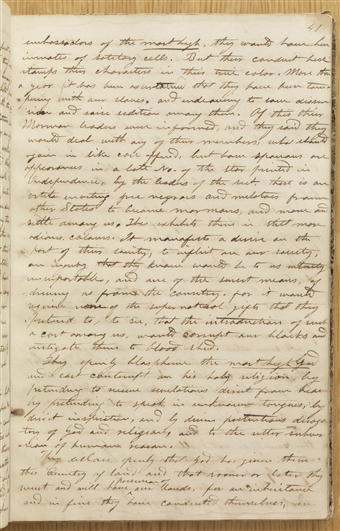 41
embassadors of the most high, they would have been
inmates of solitary cells. But their conduct here
stamps their characters in their true colors. More than
a year it has been ascertained that they have been tam-
pering with our slaves, and endeavoring to sow dissen-
tion and raise sedition among them. Of this their
Mormon leaders were informed, and they said they
would deal with any of their members, who should
again in like case offend, but how specious are
appearances in a late No. of the star printed in
Independence, by the leaders of the sect, there is an
article inviting free negroes and mulatoes from
other States to become mormons, and move and
settle among us. This exhibits them in still more
odious colours. It manifests a desire on the
part of their society, to inflict on our society,
an injury that they know would be to us entirely
insupportable, and one of the surest means, of
driving us from the country, for it would
require none of the supernatural gifts that they
pretend to, to see, that the introduction of such
a cast among us, would corrupt our blacks and
instigate them to blood shed.
They openly blaspheme the most high God
and cast contempt on his holy religion, by
pretending to receive revelations direct from heaven
by pretending to speak in unknown tongues, by
direct inspiration, and by divers pretentions deroga-
tory of God and religion, and to the utter subver-
sion of human reason.
They declare openly that God has given them
this country of land and that sooner or later they
must and will have possession of our lands. for an inheritance
and in fine they have conducted themselves, on